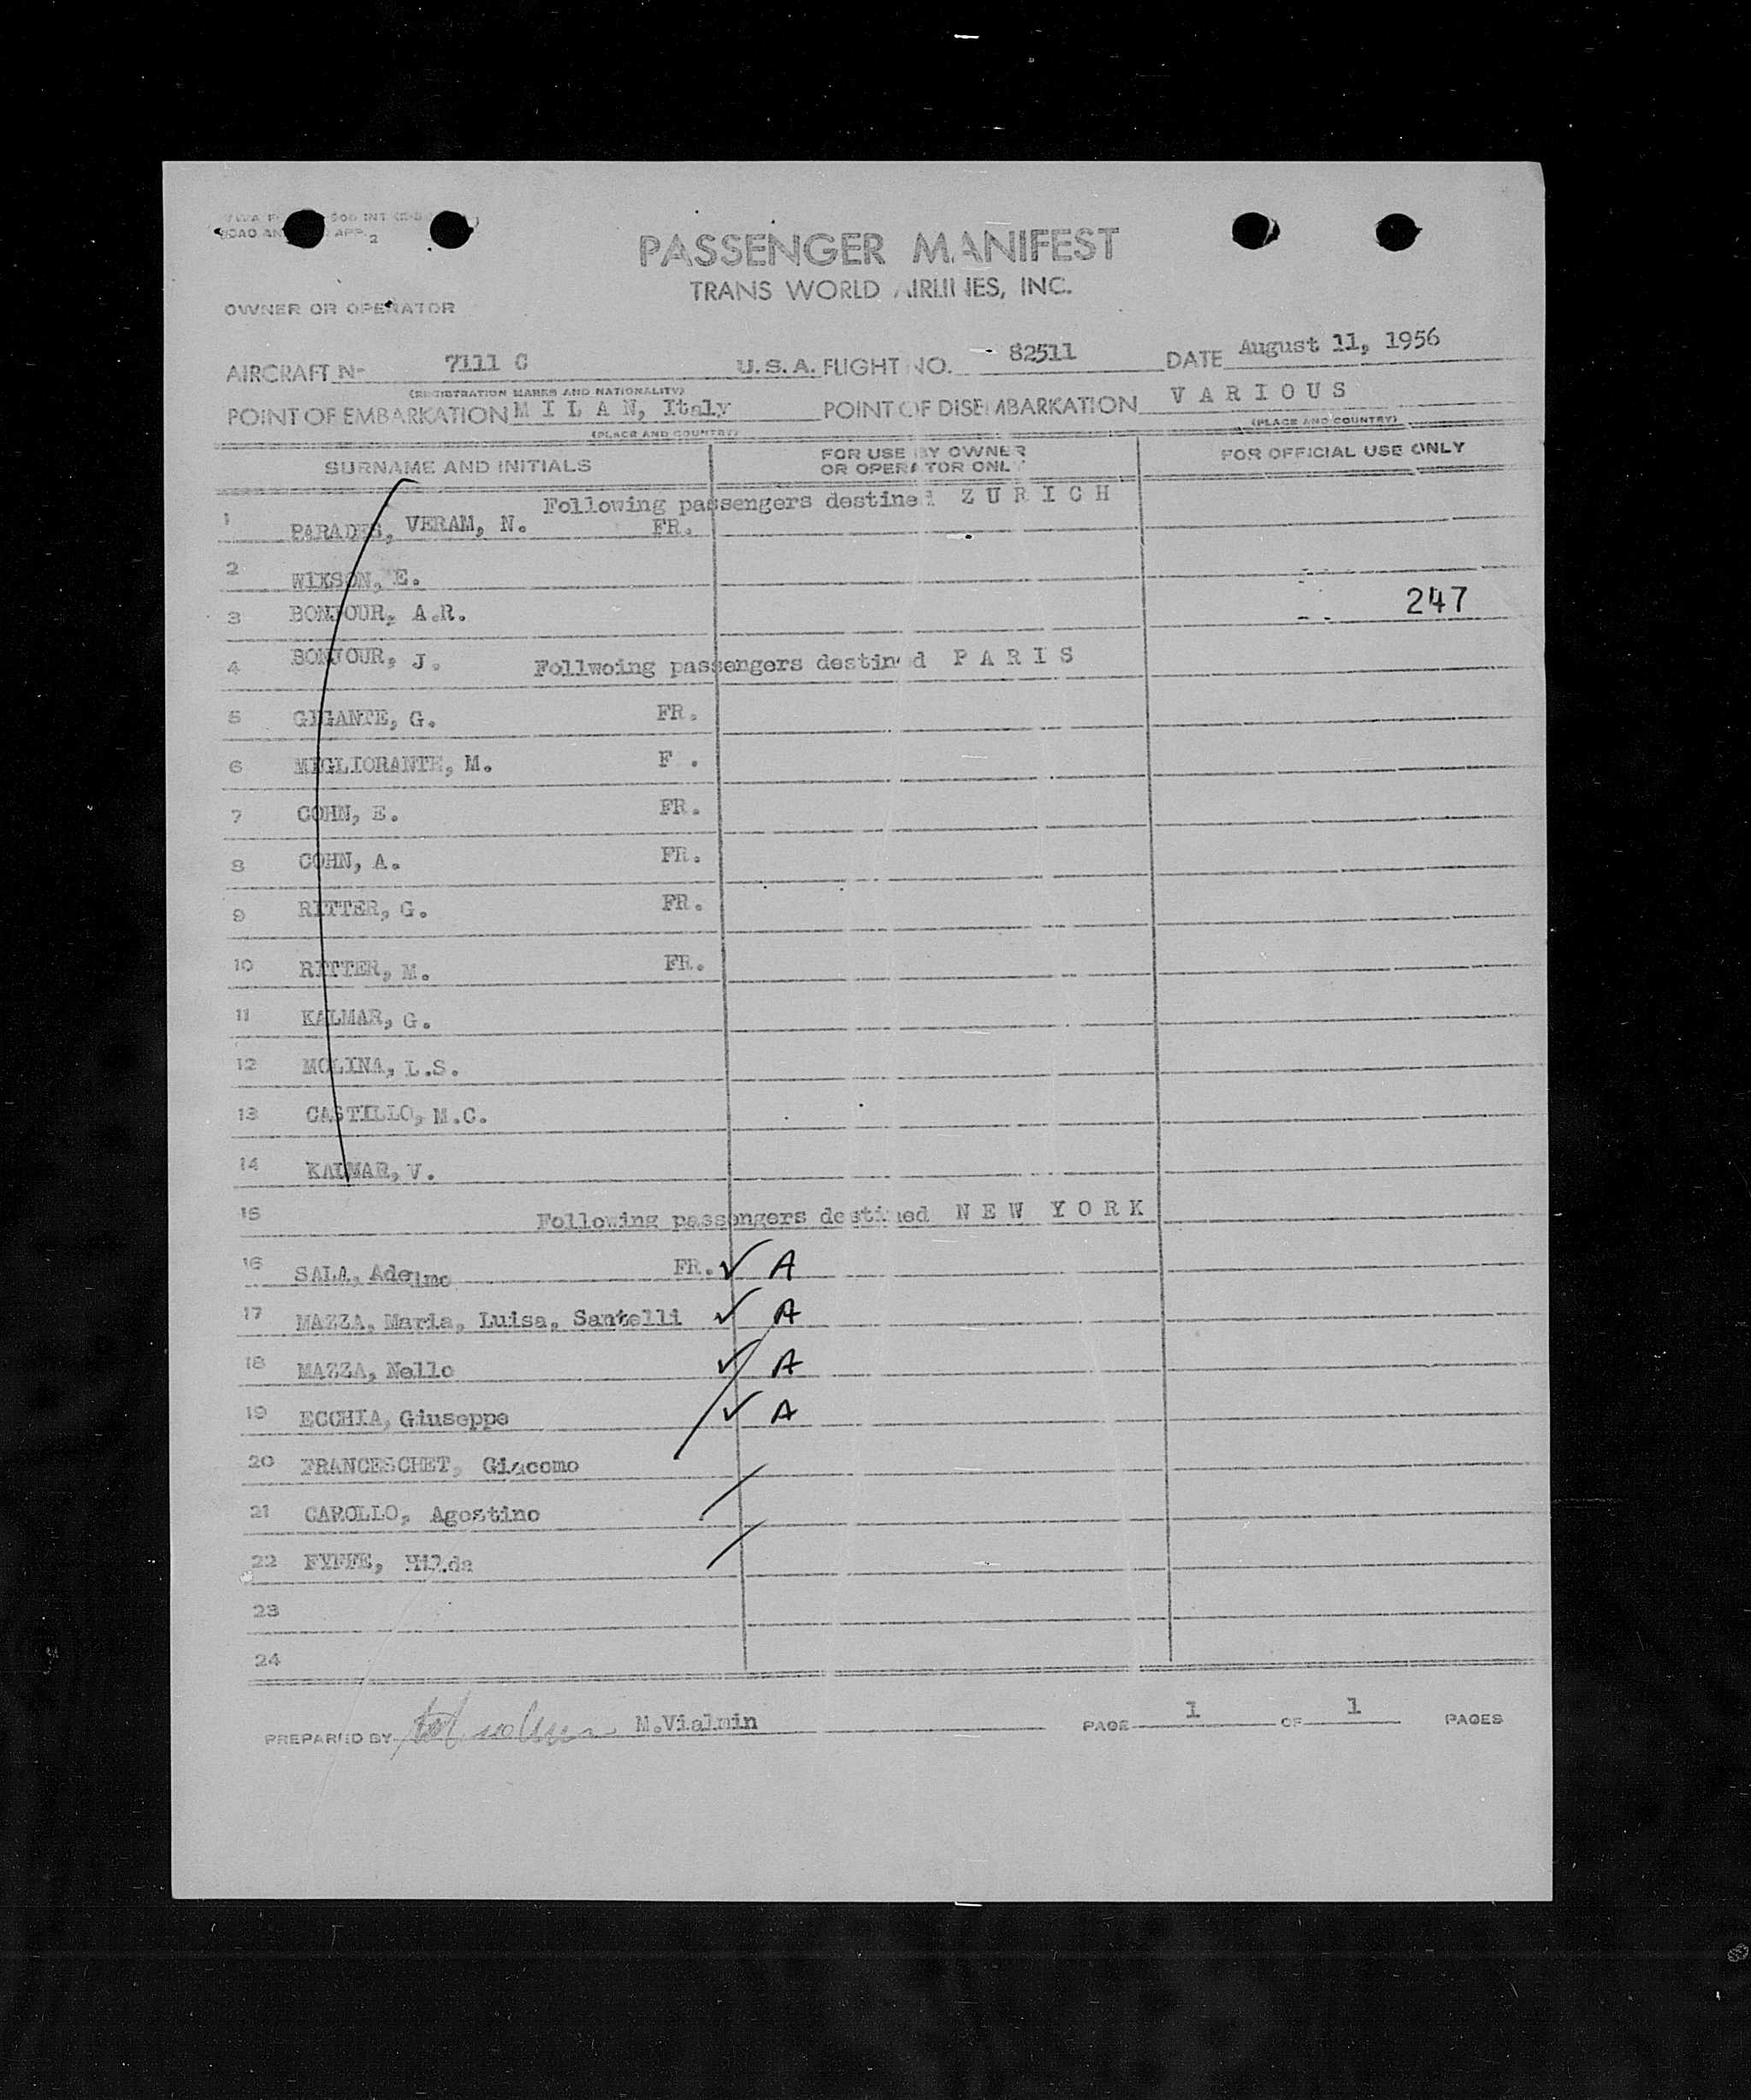 APP. 2
PASSENGER MANIFEST
TRANS WORLD AIRLINES, INC.
OWNER OR OPERATOR
AIRCRAFT N- 7111 C U.S.A. FLIGHT NO. 82511 DATE August 11, 1956
(REGISTRATION MARKS AND NATIONALITY)
POINT OF EMBARKATION M I L A N, Italy POINT OF DISEMBARKATION V A R I O U S
(PLACE AND COUNTRY) (PLACE AND COUNTRY)
SURNAME AND INITIALS FOR USE BY OWNER OR OPERATOR ONLY FOR OFFICIAL USE ONLY
Following passengers destined Z U R I C H
1 PARADES, VERAM, N. FR.
2 WIXSON, E.
3 BONJOUR, A.R. 247
4 BONJOUR, J. Follwoing passengers destined P A R I S
5 GIGANTE, G. FR.
6 MIGLIORANTE, M. F .
7 COHN, E. FR.
8 COHN, A. FR.
9 RITTER, G. FR.
10 RITTER, M. FR.
11 KALMAR, G.
12 MOLINA, L.S.
13 CASTILLO, M.C.
14 KALMAR, V.
15 Following passengers destined N E W Y O R K
16 SALA, Adelmo FR. ✓ A
17 MAZZA, Maria, Luisa, Santelli ✓ A
18 MAZZA, Nello ✓ A
19 ECCHIA, Giuseppe ✓ A
20 FRANCESCHET, Giacomo
21 CAROLLO, Agostino
22 FYFFE, Hilda
23
24
PREPARED BY M.Vialmin PAGE 1 OF 1 PAGES